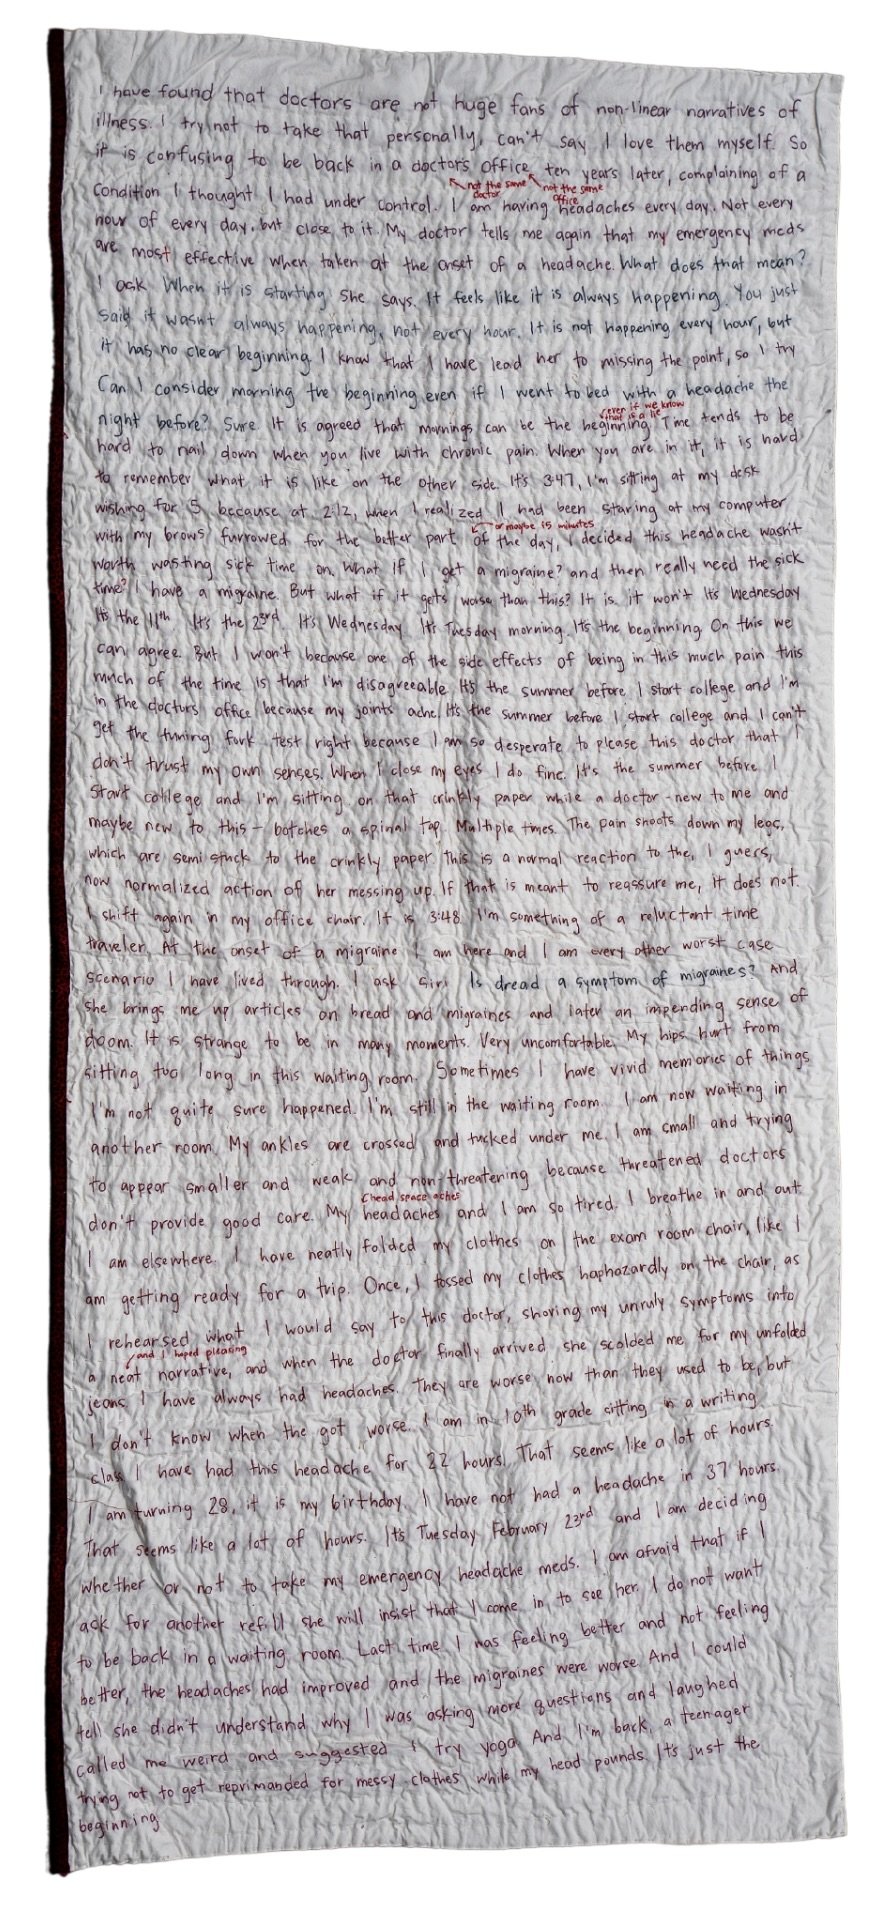 I have found that doctors are not huge fans of non-linear narratives of
illness. I try not to take that personally, can't say I love them myself. So
it is confusing to be back in a doctor's office ten years later, complaining of a
not the same doctor
not the same office
condition I thought I had under control. I am having headaches every day. Not every
hour of every day, but close to it. My doctor tells me again that my emergency meds
are most effective when taken at the onset of a headache. What does that mean?
I ask When it is starting she says. It feels like it is always happening. You just
said it wasn't always happening, not every hour. It is not happening every hour, but
it has no clear beginning. I know that I have lead her to missing the point, so I try
Can I consider morning the beginning even if I went to bed with a headache the
even if we know that is a lie
night before? Sure. It is agreed that mornings can be the beginning. Time tends to be
hard to nail down when you live with chronic pain. When you are in it, it is hard
to remember what it is like on the other side. It's 3:47, I'm sitting at my desk
wishing for 5 because at 2:12, when I realized I had been staring at my computer
or maybe 15 minutes
with my brows furrowed for the better part of the day, I decided this headache wasn't
worth wasting sick time on. What if I get a migraine? and then really need the sick
time? I have a migraine. But what if it gets worse than this? It is. it won't It's Wednesday
It's the 11th It's the 23rd. It's Wednesday It's Tuesday morning. It's the beginning. On this we
can agree. But I won't because one of the side effects of being in this much pain this
much of the time is that I'm disagreeable. It's the summer before I start college and I'm
in the doctors office because my joints ache. It's the summer before I start college and I can't
get the tuning fork test right because I am so desperate to please this doctor that I
don't trust my own senses. When I close my eyes I do fine. It's the summer before I
start college and I'm sitting on that crinkly paper while a doctor - new to me and
maybe new to this - botches a spinal tap. Multiple times. The pain shoots down my legs,
which are semi stuck to the crinkly paper this is a normal reaction to the, I guess,
now normalized action of her messing up. If that is meant to reassure me, it does not.
I shift again in my office chair. It is 3:48 I'm something of a reluctant time
traveler. At the onset of a migraine I am here and I am every other worst case
scenario I have lived through. I ask Siri Is dread a symptom of migraines? And
she brings me up articles on bread and migraines and later an impending sense of
doom. It is strange to be in many moments. Very uncomfortable. My hips hurt from
sitting too long in this waiting room. Sometimes I have vivid memories of things
I'm not quite sure happened. I'm still in the waiting room. I am now waiting in
another room. My ankles are crossed and tucked under me. I am small and trying
to appear smaller and weak and non-threatening because threatened doctors
head space aches
don't provide good care. My headaches and I am so tired. I breathe in and out.
I am elsewhere. I have neatly folded my clothes on the exam room chair, like I
am getting ready for a trip. Once, I tossed my clothes haphazardly on the chair, as
I rehearsed what I would say to this doctor, shoving my unruly symptoms into
and I hoped pleasing
a neat narrative, and when the doctor finally arrived she scolded me for my unfolded
jeans. I have always had headaches. They are worse now than they used to be, but
I don't know when the got worse. I am in 10th grade sitting in a writing
class I have had this headache for 22 hours. That seems like a lot of hours.
I am turning 28, it is my birthday. I have not had a headache in 37 hours.
That seems like a lot of hours. It's Tuesday February 23rd and I am deciding
whether or not to take my emergency headache meds. I am afraid that if I
ask for another refill she will insist that I come in to see her. I do not want
to be back in a waiting room. Last time I was feeling better and not feeling
better, the headaches had improved and the migraines were worse. And I could
tell she didn't understand why I was asking more questions and laughed
called me weird and suggested I try yoga. And I'm back, a teenager
trying not to get reprimanded for messy clothes while my head pounds. It's just the
beginning